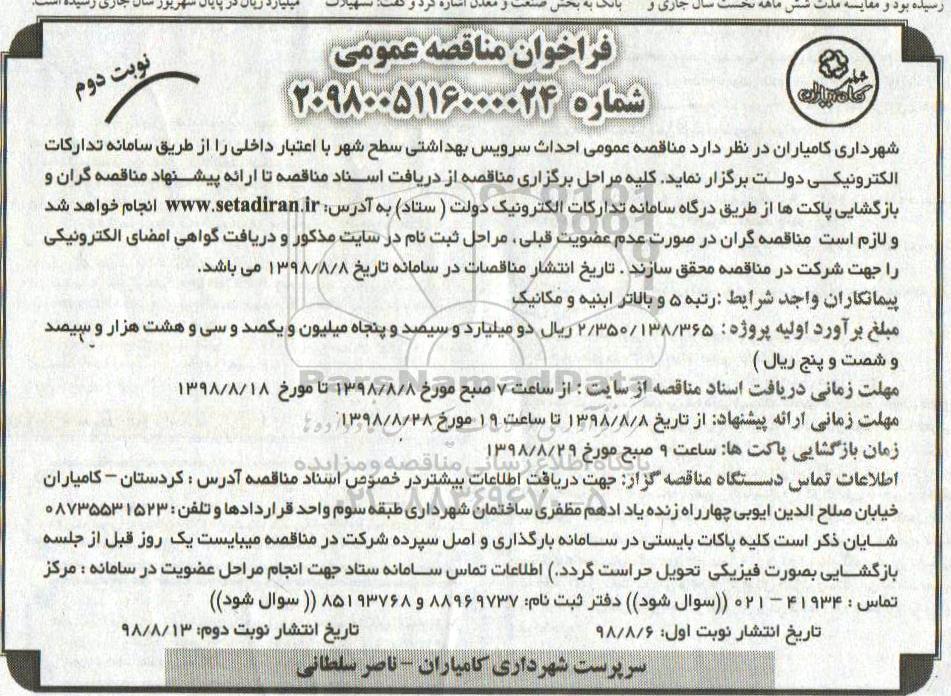 رسیده بود و مقایسه مدت شش ماهه نخست سال جاری و
بانک به بخش صنعت و معدن اشاره کرد و گفت: تسهیلات
میلیارد ریال در پایان شهریور سال جاری رسیده است.
فراخوان مناقصه عمومی
شماره ۲۰۹۸۰۰۵۱۱۶۰۰۰۰۲۴
نوبت دوم
شهرداری کامیاران در نظر دارد مناقصه عمومی احداث سرویس بهداشتی سطح شهر با اعتبار داخلی را از طریق سامانه تدارکات
الکترونیکی دولت برگزار نماید. کلیه مراحل برگزاری مناقصه از دریافت اسناد مناقصه تا ارائه پیشنهاد مناقصه گران و
بازگشایی پاکت ها از طریق درگاه سامانه تدارکات الکترونیک دولت ( ستاد) به آدرس: www.setadiran.ir انجام خواهد شد
و لازم است مناقصه گران در صورت عدم عضویت قبلی، مراحل ثبت نام در سایت مذکور و دریافت گواهی امضای الکترونیکی
را جهت شرکت در مناقصه محقق سازند . تاریخ انتشار مناقصات در سامانه تاریخ ۱۳۹۸/۸/۸ می باشد.
پیمانکاران واجد شرایط :رتبه ۵ و بالاتر ابنیه و مکانیک
مبلغ برآورد اولیه پروژه : ۲/۳۵۰/۱۳۸/۳۶۵ ریال دو میلیارد و سیصد و پنجاه میلیون و یکصد و سی و هشت هزار و سیصد
و شصت و پنج ریال )
مهلت زمانی دریافت اسناد مناقصه از سایت : از ساعت ۷ صبح مورخ ۱۳۹۸/۸/۸ تا مورخ ۱۳۹۸/۸/۱۸
مهلت زمانی ارائه پیشنهاد: از تاریخ ۱۳۹۸/۸/۸ تا ساعت ۱۹ مورخ ۱۳۹۸/۸/۲۸
زمان بازگشایی پاکت ها: ساعت ۹ صبح مورخ ۱۳۹۸/۸/۲۹
اطلاعات تماس دستگاه مناقصه گزار: جهت دریافت اطلاعات بیشتر در خصوص اسناد مناقصه آدرس : کردستان – کامیاران
خیابان صلاح الدین ایوبی چهارراه زنده یاد ادهم مظفری ساختمان شهرداری طبقه سوم واحد قراردادها و تلفن : ۰۸۷۳۵۵۳۱۵۲۳
شایان ذکر است کلیه پاکات بایستی در سامانه بارگذاری و اصل سپرده شرکت در مناقصه میبایست یک روز قبل از جلسه
بازگشایی بصورت فیزیکی تحویل حراست گردد.) اطلاعات تماس سامانه ستاد جهت انجام مراحل عضویت در سامانه : مرکز
تماس : ۴۱۹۳۴ – ۰۲۱ ((سوال شود)) دفتر ثبت نام: ۸۸۹۶۹۷۳۷ و ۸۵۱۹۳۷۶۸ (( سوال شود))
تاریخ انتشار نوبت اول: ۹۸/۸/۶
تاریخ انتشار نوبت دوم: ۹۸/۸/۱۳
سرپرست شهرداری کامیاران – ناصر سلطانی
ParsNamadData
پایگاه اطلاع رسانی مناقصه و مزایده
۰۲۱-۸۸۳۴۹۶۷۰-۵